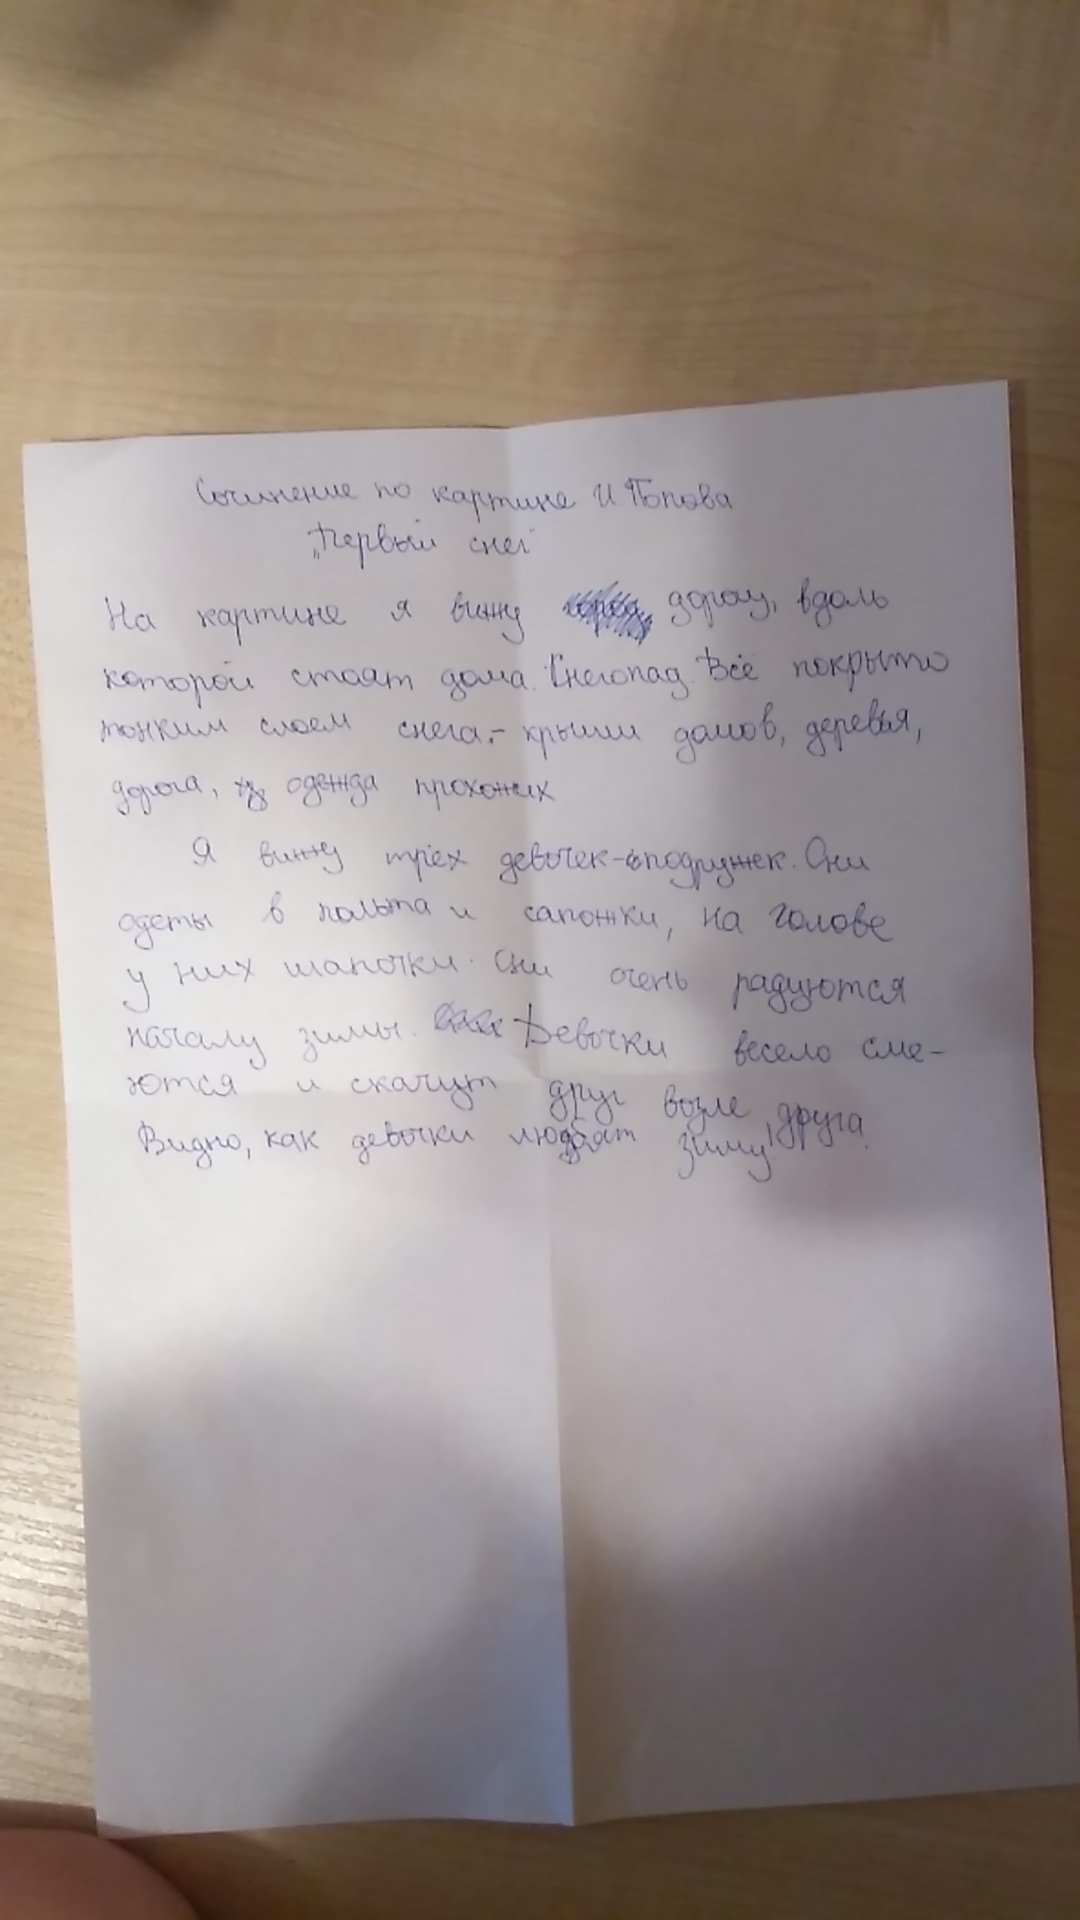 Сочинение по картине И Попова
„Первый снег"
На картине я вижу дорогу, вдоль
которой стоят дома. Снегопад. Всё покрыто
тонким слоем снега - крыши домов, деревья,
дорога, одежда прохожих.
Я вижу трёх девочек-подружек. Они
одеты в пальта и сапожки, на голове
у них шапочки. Они очень радуются
началу зимы. Девочки весело сме-
ются и скачут друг возле друга.
Видно, как девочки любят зиму!